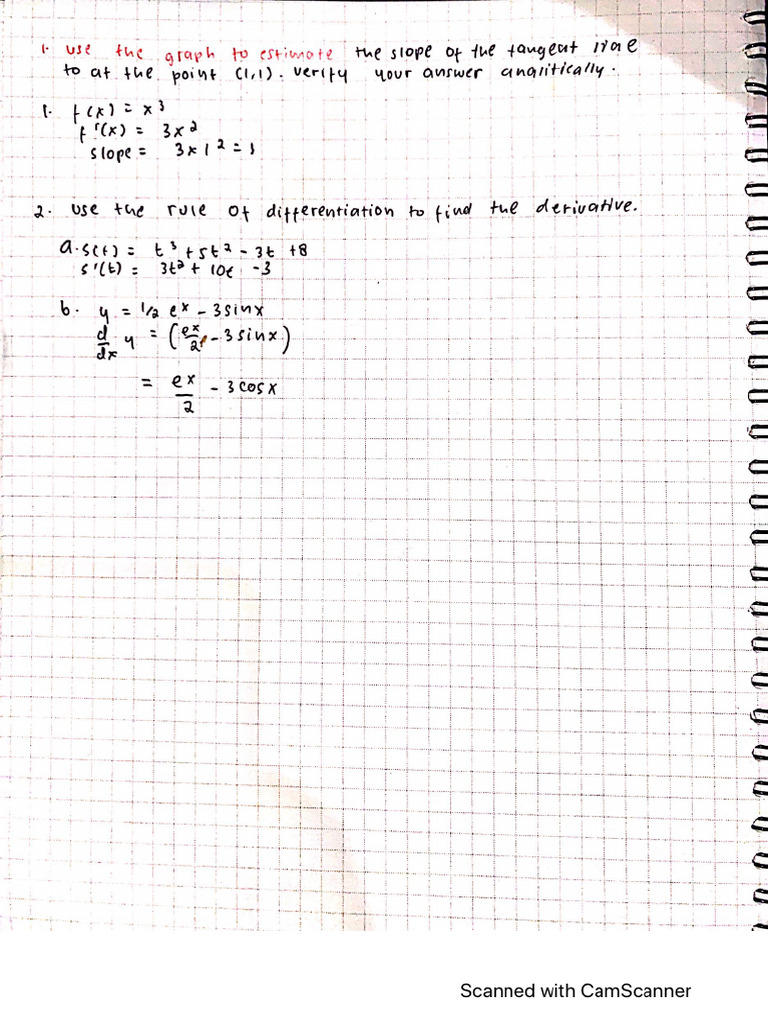 1. use the graph to estimate the slope of the tangent line
to at the point (1,1). verify your answer analitically.
1. f(x) = x³
f'(x) = 3x²
slope = 3 x 1² = 3
2. use the rule of differentiation to find the derivative.
a. s(t) = t³ + 5t² - 3t + 8
s'(t) = 3t² + 10t - 3
b. y = 1/2 eˣ - 3 sin x
d/dx y = (eˣ/2 - 3 sin x)
= eˣ/2 - 3 cos x
Scanned with CamScanner